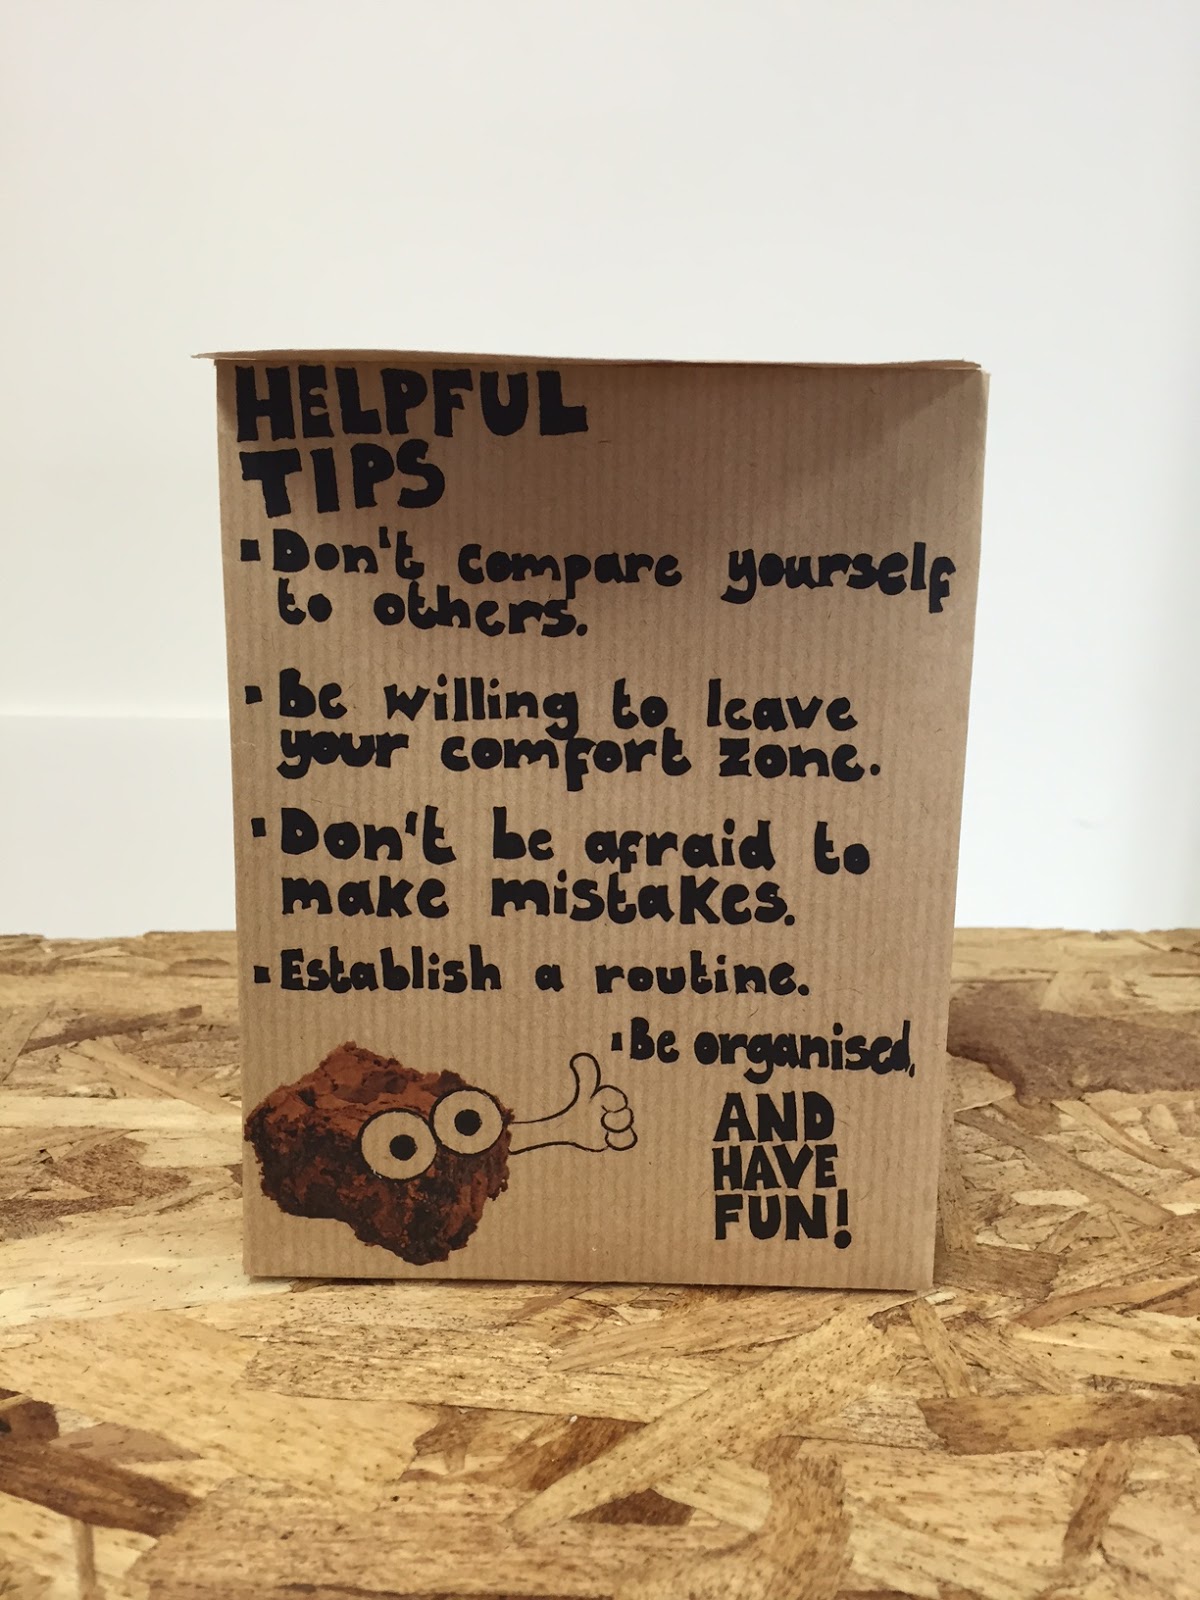 HELPFUL
TIPS
▪ Don't compare yourself
to others.
▪ Be willing to leave
your comfort zone.
▪ Don't be afraid to
make mistakes.
▪ Establish a routine.
▪ Be organised.
AND
HAVE
FUN!